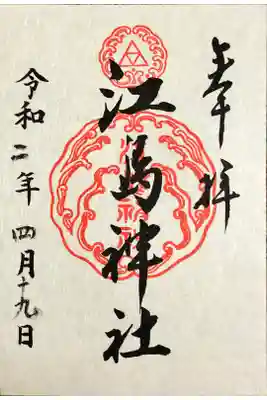 奉拝
江島神社
令和二年四月十九日